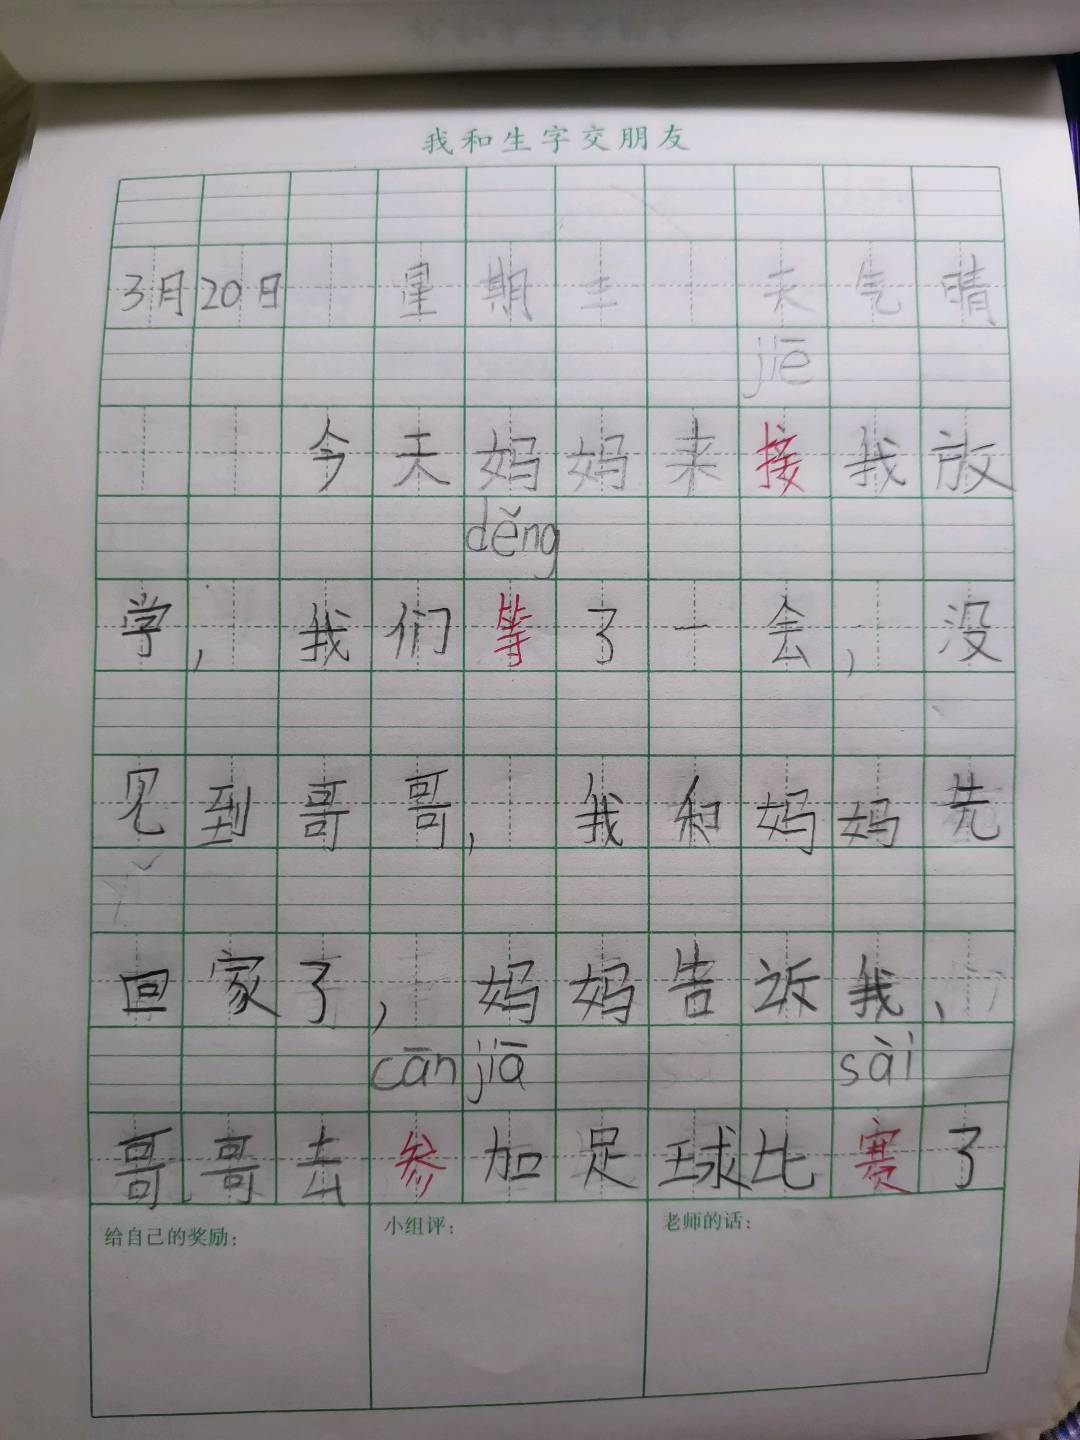 我和生字交朋友
3月20日 星期 天气晴
jiē
今天妈妈来接我放
děng
学，我们等了一会，没
见到哥哥，我和妈妈先
回家了，妈妈告诉我、
cān jiā sài
哥哥去参加足球比赛了
给自己的奖励： 小组评： 老师的话：